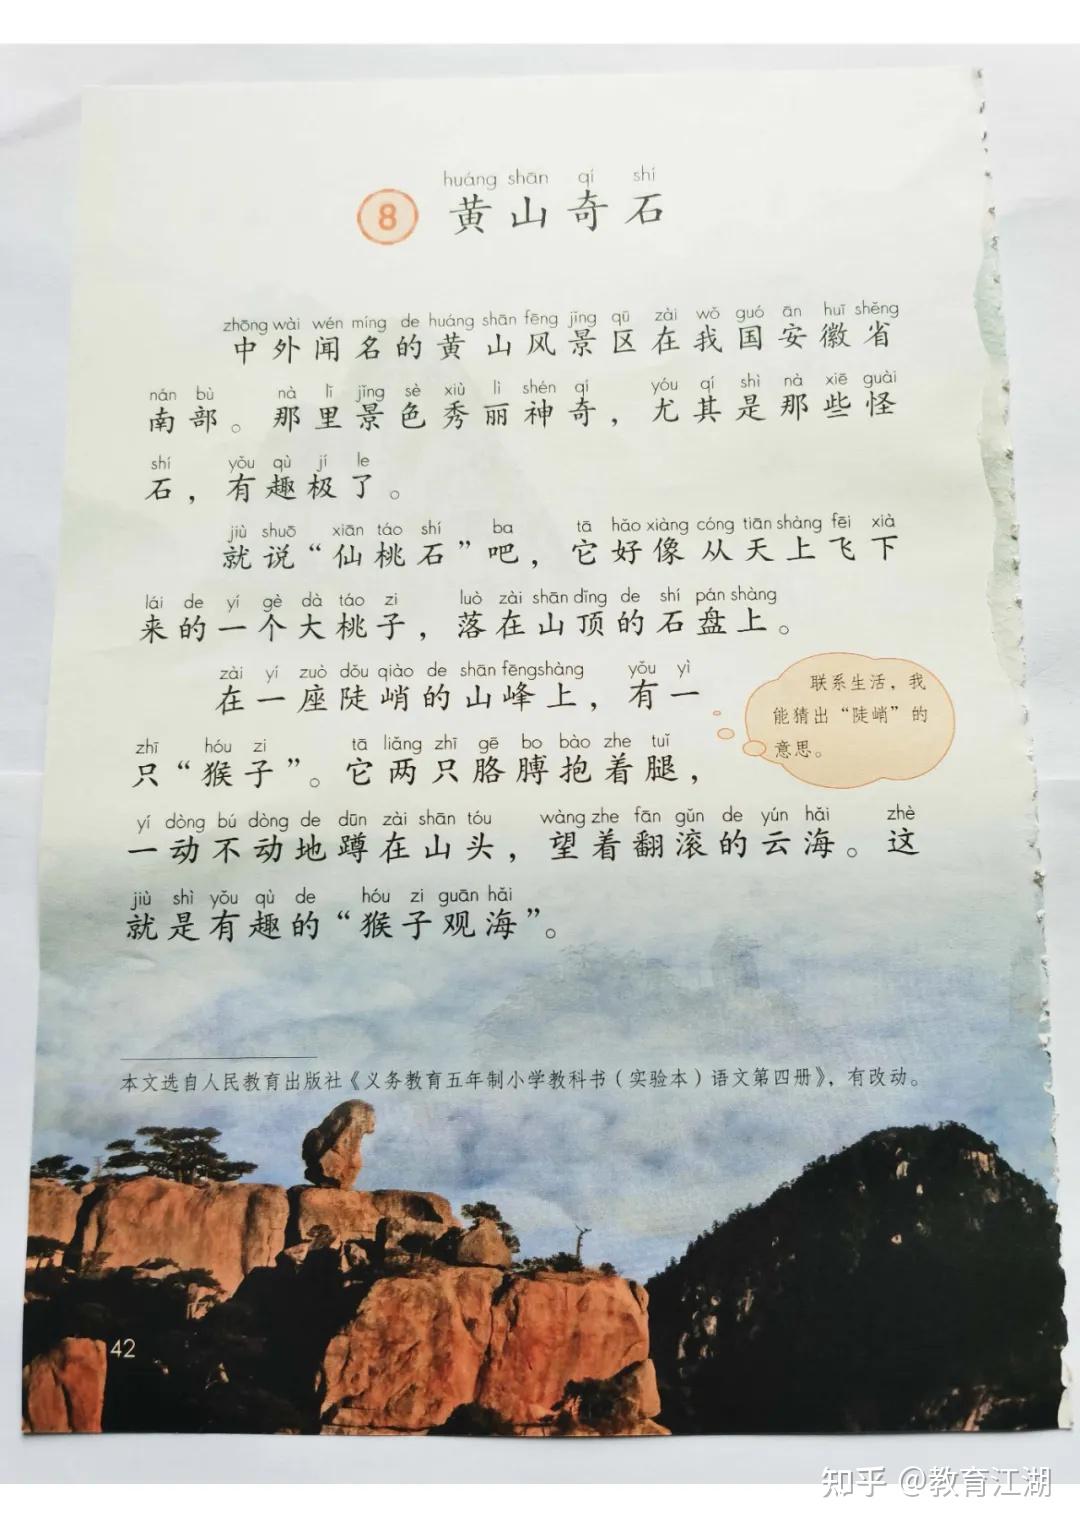 huáng shān qí shí
8 黄山奇石
zhōng wài wén míng de huáng shān fēng jǐng qū zài wǒ guó ān huī shěng
中外闻名的黄山风景区在我国安徽省
nán bù nà lǐ jǐng sè xiù lì shén qí yóu qí shì nà xiē guài
南部。那里景色秀丽神奇，尤其是那些怪
shí yǒu qù jí le
石，有趣极了。
jiù shuō xiān táo shí ba tā hǎo xiàng cóng tiān shàng fēi xià
就说“仙桃石”吧，它好像从天上飞下
lái de yí gè dà táo zi luò zài shān dǐng de shí pán shàng
来的一个大桃子，落在山顶的石盘上。
zài yí zuò dǒu qiào de shān fēng shàng yǒu yì
在一座陡峭的山峰上，有一
zhī hóu zi tā liǎng zhī gē bo bào zhe tuǐ
只“猴子”。它两只胳膊抱着腿，
yí dòng bú dòng de dūn zài shān tóu wàng zhe fān gǔn de yún hǎi zhè
一动不动地蹲在山头，望着翻滚的云海。这
jiù shì yǒu qù de hóu zi guān hǎi
就是有趣的“猴子观海”。
联系生活，我
能猜出“陡峭”的
意思。
本文选自人民教育出版社《义务教育五年制小学教科书（实验本）语文第四册》，有改动。
42
知乎 @教育江湖